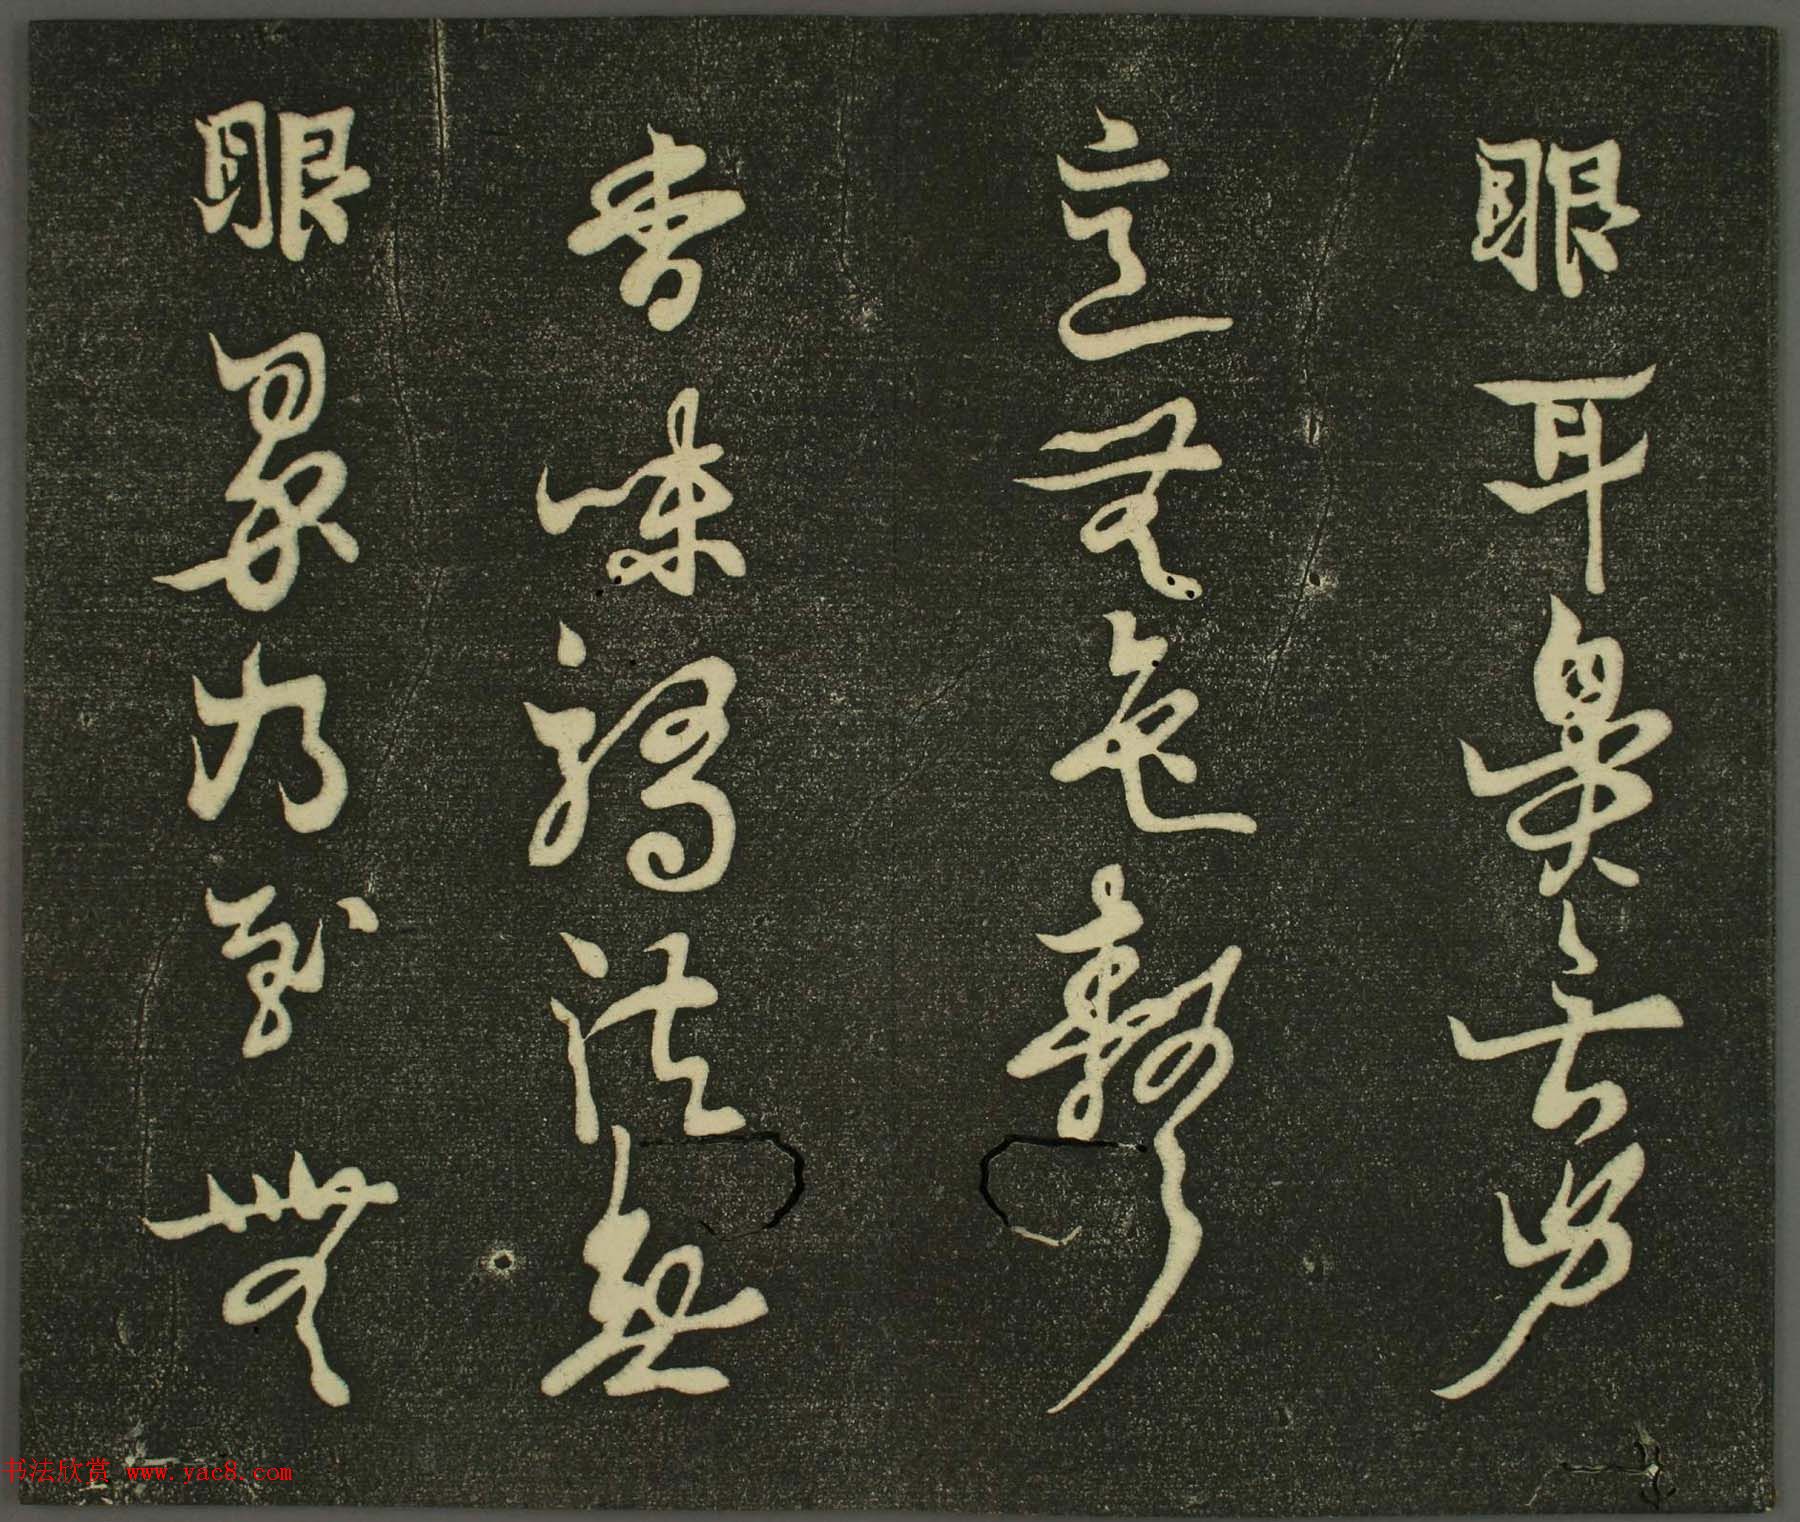 眼耳鼻舌身
意無色聲
香味觸法無
眼界乃至無
书法欣赏 www.yac8.com